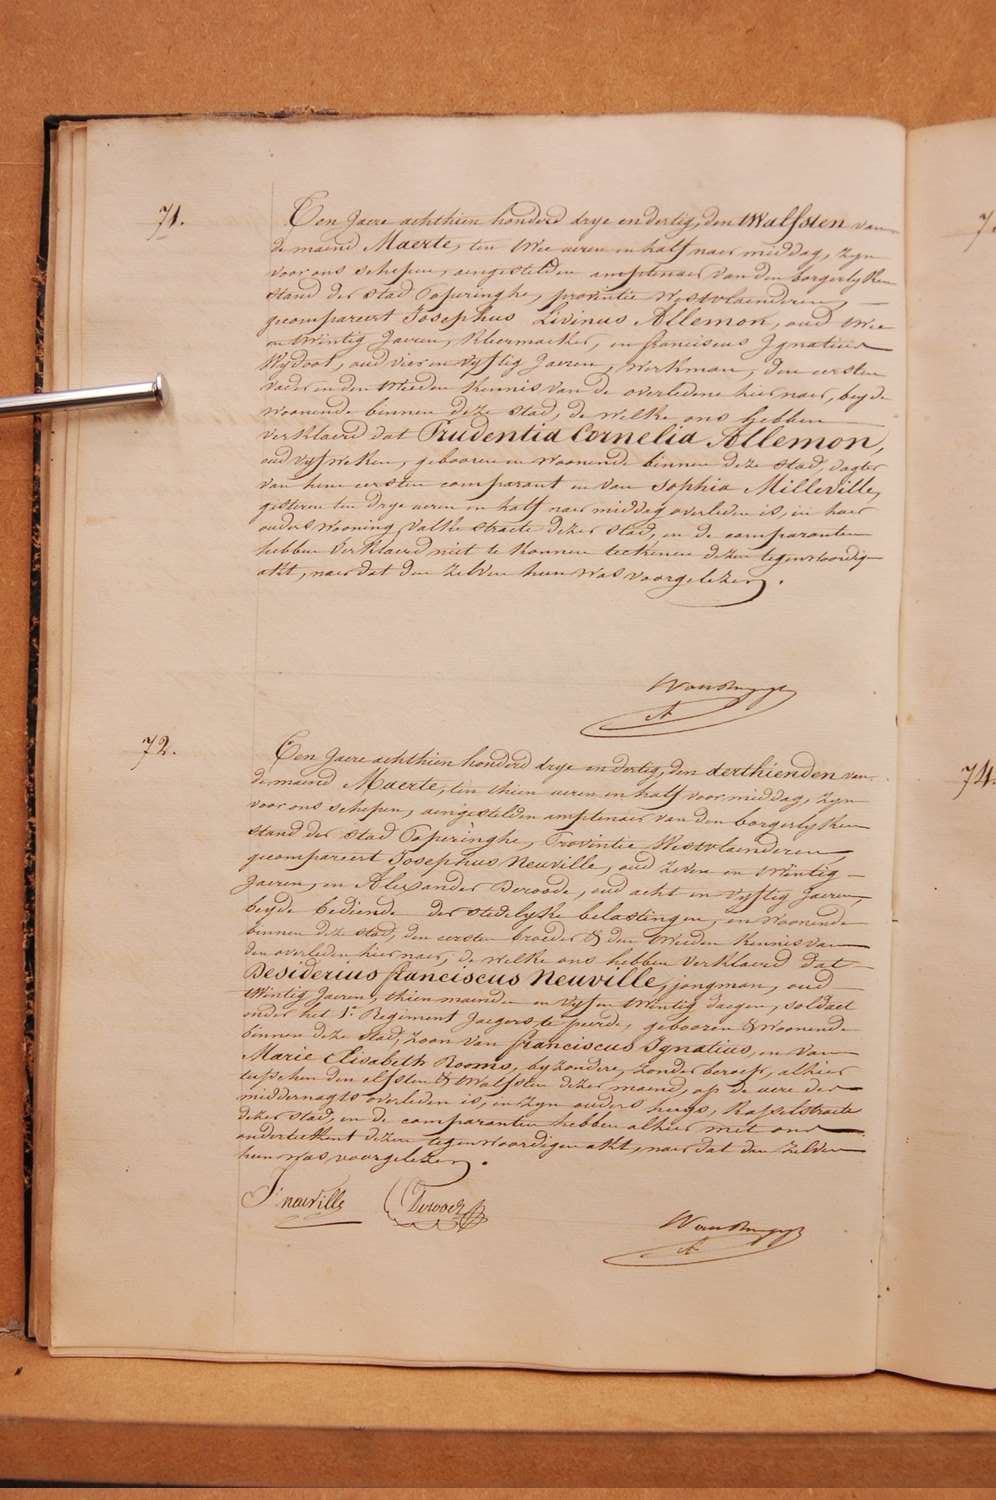 71.
Een Jaere achthien honderd drye en dertig, den twalfsten van
de maend Maerte, ten twee ueren en half naer middag, zyn
voor ons schepen, aengestelden amptenaer van den borgerlyken
stand der stad Poperinghe, provintie Westvlaenderen,
gecompareert Josephus Livinus Allemon, oud twee
en twintig Jaeren, kleermaeker, en franciscus Ignatius
Wydoot, oud vier en vyftig Jaeren, werkman, den eersten
vader en den tweeden kennis van de overledene hier naer, beyde
woonende binnen deze stad, de welke ons hebben
verklaerd dat Prudentia Cornelia Allemon,
oud vyf weken, gebooren en woonende binnen deze stad, dogter
van hem eersten comparant en van Sophia Milleville,
gisteren ten drye ueren en half naer middag overleden is, in haer
ouders wooning, valke straete dezer stad, en de comparanten
hebben verklaerd niet te konnen teekenen dezen tegenwoordigen
akt, naer dat den zelven hun was voorgelezen.
72.
Een Jaere achthien honderd drye en dertig, den derthienden van
de maend Maerte, ten thien ueren en half voor middag, zyn
voor ons schepen, aengestelden amptenaer van den borgerlyken
stand der stad Poperinghe, Provintie Westvlaenderen,
gecompareert Josephus Neuville, oud zeven en twintig
Jaeren, en Alexander Deroode, oud acht en vyftig Jaeren,
beyde bediende der stedelyke belastingen, en woonende
binnen deze stad, den eersten broeder & den tweeden kennis van
den overleden hier naer, de welke ons hebben verklaerd dat
Desiderius franciscus Neuville, jongman, oud
twintig Jaeren, thien maenden en vyf en twintig daegen, soldaet
onder het 1e Regiment Jaegers te peerde, gebooren & woonende
binnen deze stad, zoon van franciscus Ignatius, en van
Marie Elisabeth Rooms, byzondere, zonder beroep, alhier
tusschen den elfsten & twalfsten dezer maend, op de uere der
middernagts overleden is, in zyn ouders huys, Kasselstraete
dezer stad, en de comparanten hebben alhier met ons
onderteekent dezen tegenwoordigen akt, naer dat den zelven
hun was voorgelezen.
J. neuville Deroode
74.